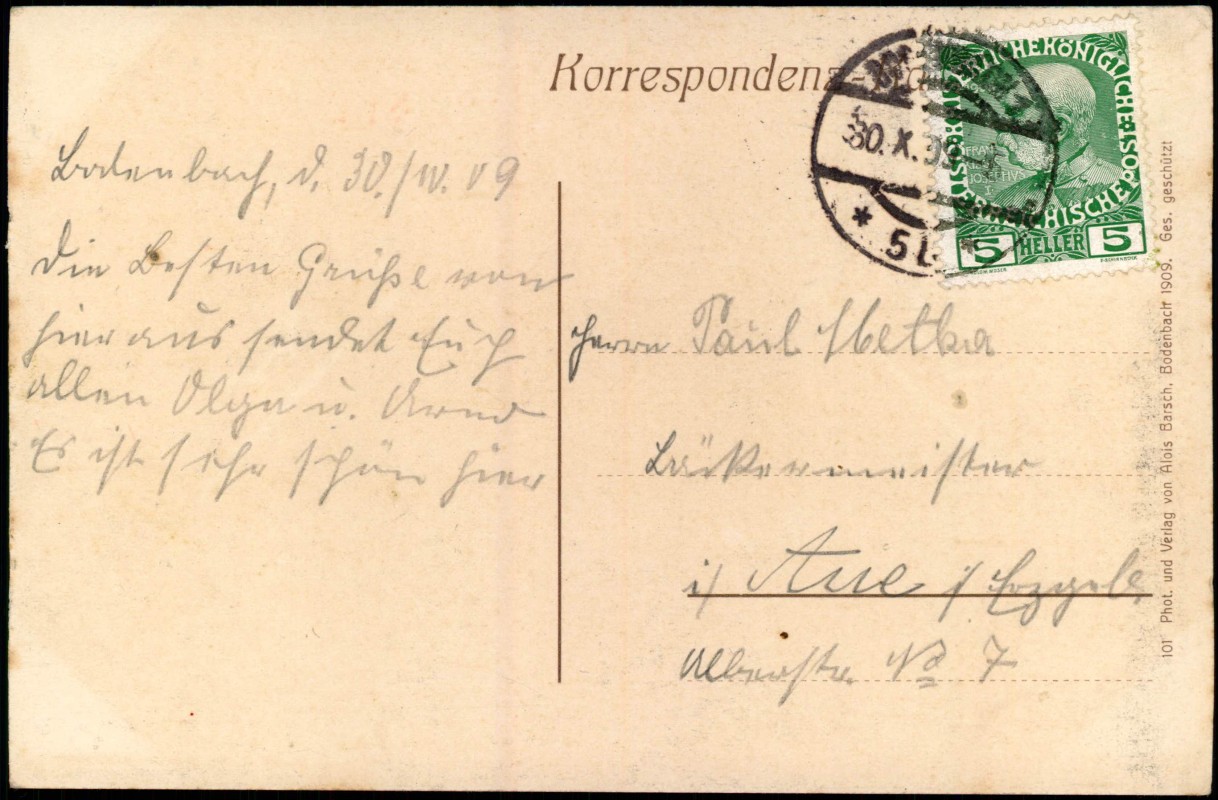 Korrespondenz-
Bodenbach, d. 30./IV. 09
Die Besten Grüße von
hier aus sendet Euch
allen Olga u.
Es ist sehr schön hier
30.X.09
* 5 *
KAISERLICHE KÖNIGLICHE ÖSTERREICHISCHE POST
FRANCISCUS
JOSEPHUS
I.
5 HELLER 5
Herrn Paul Metka
Bäckermeister
i/ Aue i/ Erzgeb.
Albertstr. No 7
101 Phot. und Verlag von Alois Barsch, Bodenbach 1909. Ges. geschützt